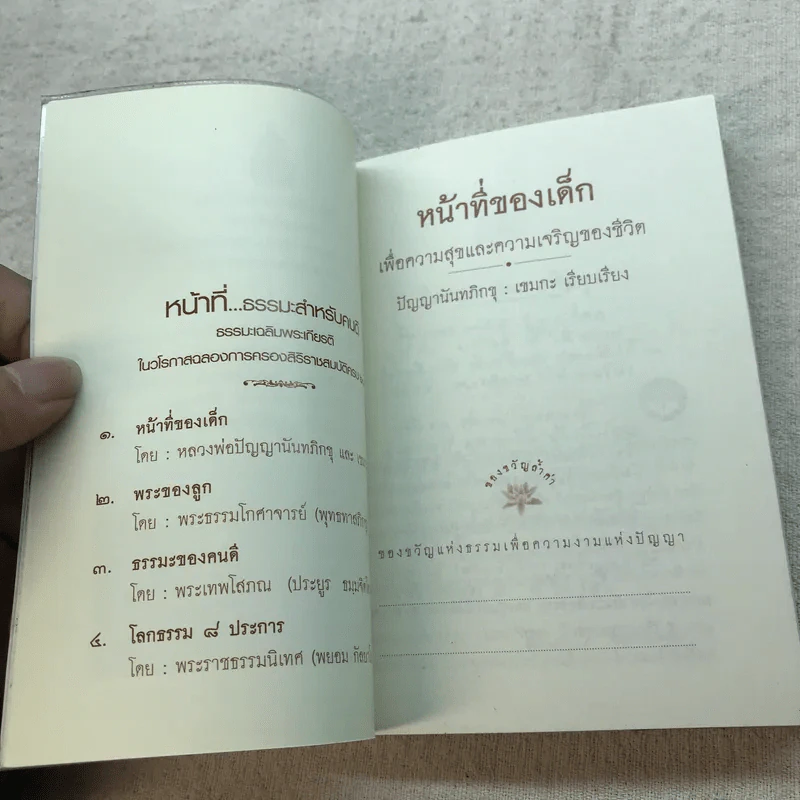 หน้าที่...ธรรมะสำหรับคนดี
ธรรมะเฉลิมพระเกียรติ
ในวโรกาสฉลองการครองสิริราชสมบัติครบ
๑. หน้าที่ของเด็ก
โดย : หลวงพ่อปัญญานันทภิกขุ และ
๒. พระของลูก
โดย : พระธรรมโกศาจารย์ (พุทธทาสภิกขุ
๓. ธรรมะของคนดี
โดย : พระเทพโสภณ (ประยูร
๔. โลกธรรม ๘ ประการ
โดย : พระราชธรรมนิเทศ (พยอม
หน้าที่ของเด็ก
เพื่อความสุขและความเจริญของชีวิต
ปัญญานันทภิกขุ : เขมกะ เรียบเรียง
ของขวัญล้ำค่า
ของขวัญแห่งธรรมเพื่อความงามแห่งปัญญา